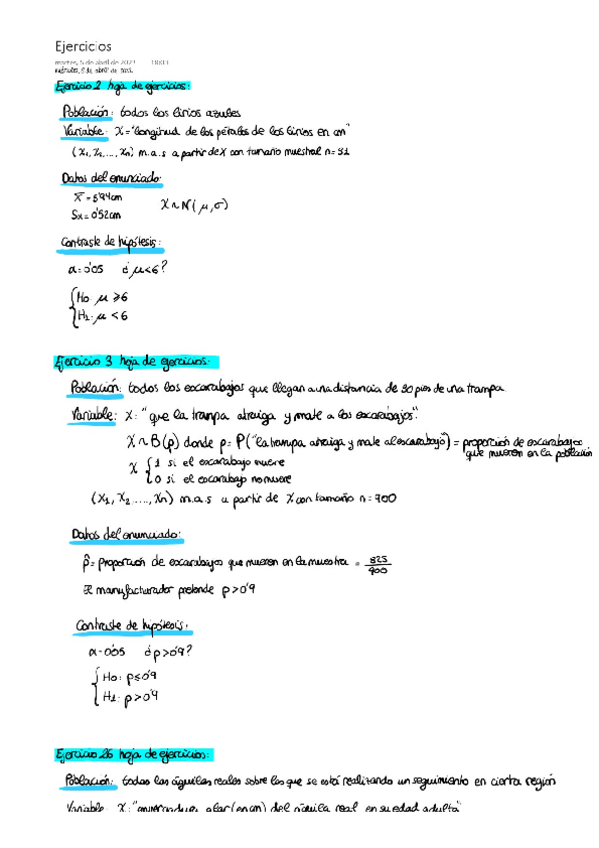 Ejercicios
martes, 5 de abril de 2021 18:03
Ejercicio 2 hoja de ejercicios:
Población: todos los lirios azules
Variable: X="longitud de los pétalos de los lirios en cm"
(X₁, X₂, ..., Xn) m.a.s a partir de X con tamaño muestral n=51
Datos del enunciado:
X̄ = 5'94cm
Sx = 0'52cm X ~ N(μ,σ)
Contraste de hipótesis:
α=0'05 ¿μ<6?
H₀: μ ≥ 6
H₁: μ < 6
Ejercicio 3 hoja de ejercicios:
Población: todos los escarabajos que llegan a una distancia de 30 pies de una trampa
Variable: X: "que la trampa atraiga y mate a los escarabajos".
X ~ B(p) donde p= P("la trampa atraiga y mate al escarabajo") = proporción de escarabajos
que mueren en la población
X { 1 si el escarabajo muere
0 si el escarabajo no muere
(X₁, X₂, ..., Xn) m.a.s a partir de X con tamaño n=900
Datos del enunciado:
p̂= proporción de escarabajos que mueren en la muestra = 825/900
El manufacturador pretende p>0'9
Contraste de hipótesis:
α=0'05 ¿p>0'9?
H₀: p≤0'9
H₁: p>0'9
Ejercicio 26 hoja de ejercicios:
Población: todas las águilas reales sobre las que se está realizando un seguimiento en cierta región
Variable: X: "envergadura alar (en cm) del águila real en su edad adulta"